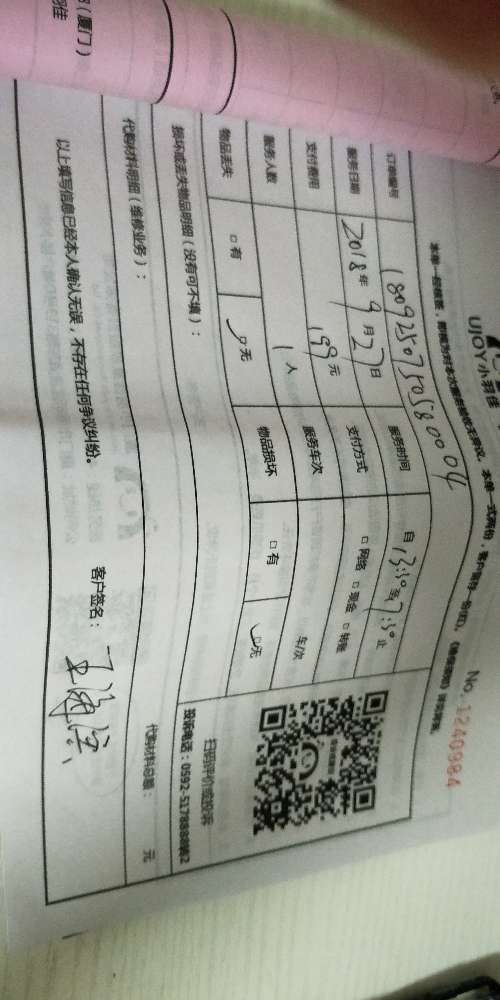 (厦门)
UJOY小羽佳
No:1240984
订单编号 1809250750580004
服务日期 2018年9月27日 服务时间 自13:30至17:30止
支付费用 199元 支付方式 □网络 □现金 □转账
服务人数 1人 服务车次 车/次
物品丢失 □有 □无 物品损坏 □有 □无
损坏或丢失物品明细(没有可不填):
扫码评价或投诉
投诉电话:0592-5178888转2
代购材料明细(维修业务): 代购材料总额: 元
以上填写信息已经本人确认无误,不存在任何争议纠纷。 客户签名: